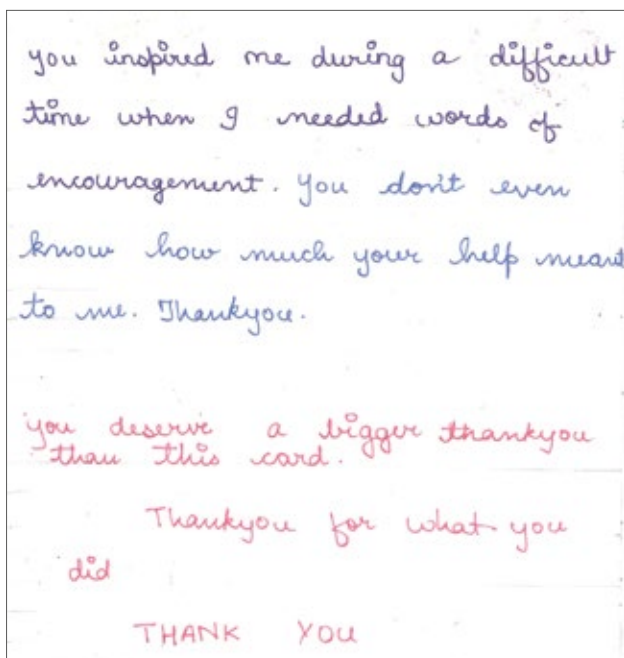 you inspired me during a difficult
time when I needed words of
encouragement. You don't even
know how much your help meant
to me. Thankyou.
you deserve a bigger thankyou
than this card.
Thankyou for what you
did
THANK YOU